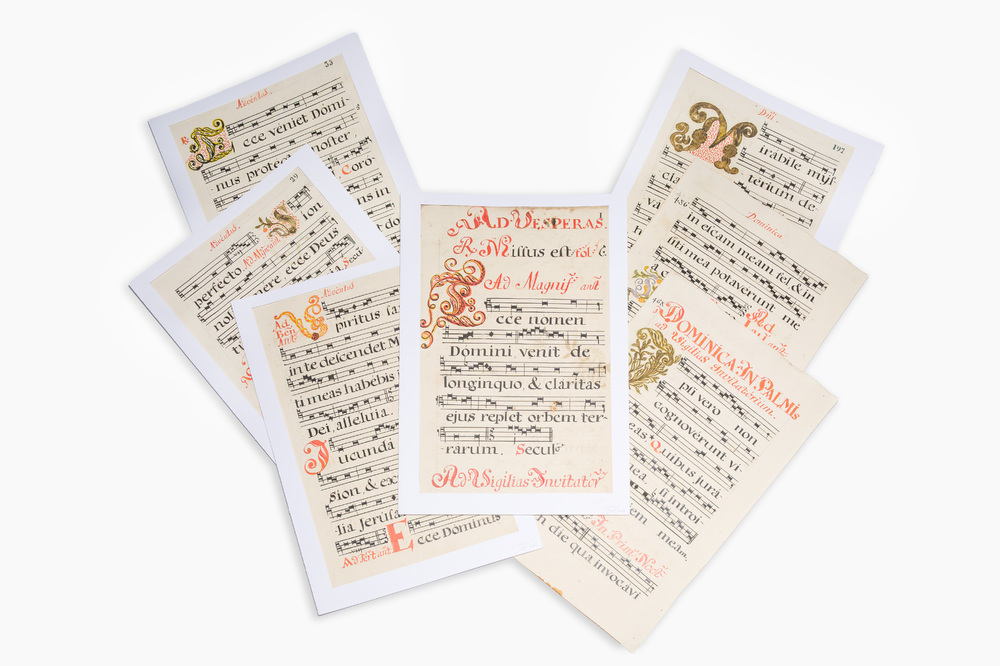 Adventus.
33
R.
Ecce veniet Domi-
nus protec noster
Coro
ns in
29
Adventus.
Sion
perfecto
vere ecce Deus
Adventus
Ad
Ben
Ant.
Spiritus
in te descendet M
ti meas habebis
Dei, alleluia.
Jucunda
sion & ex
lia Jerusa
Ad Tert. ant.
Ecce Dominus
1
AD VESPERAS.
R. Missus est. fol. 6.
Ad Magnif. ant.
Ecce nomen
Domini venit de
longinquo, & claritas
ejus replet orbem ter-
rarum. Secul.
Ad Vigilias Invitator.
197
Mirabile myf-
terium de
Dominica
in eicam meam fel & in
siti mea potaverunt me
DOMINICA IN PALMIS
ad Vigilias Invitatorium.
pii vero non
cognoverunt vi-
eas Quibus jura-
si introi
em meam.
In Prim. Noct.
die qua invocavi